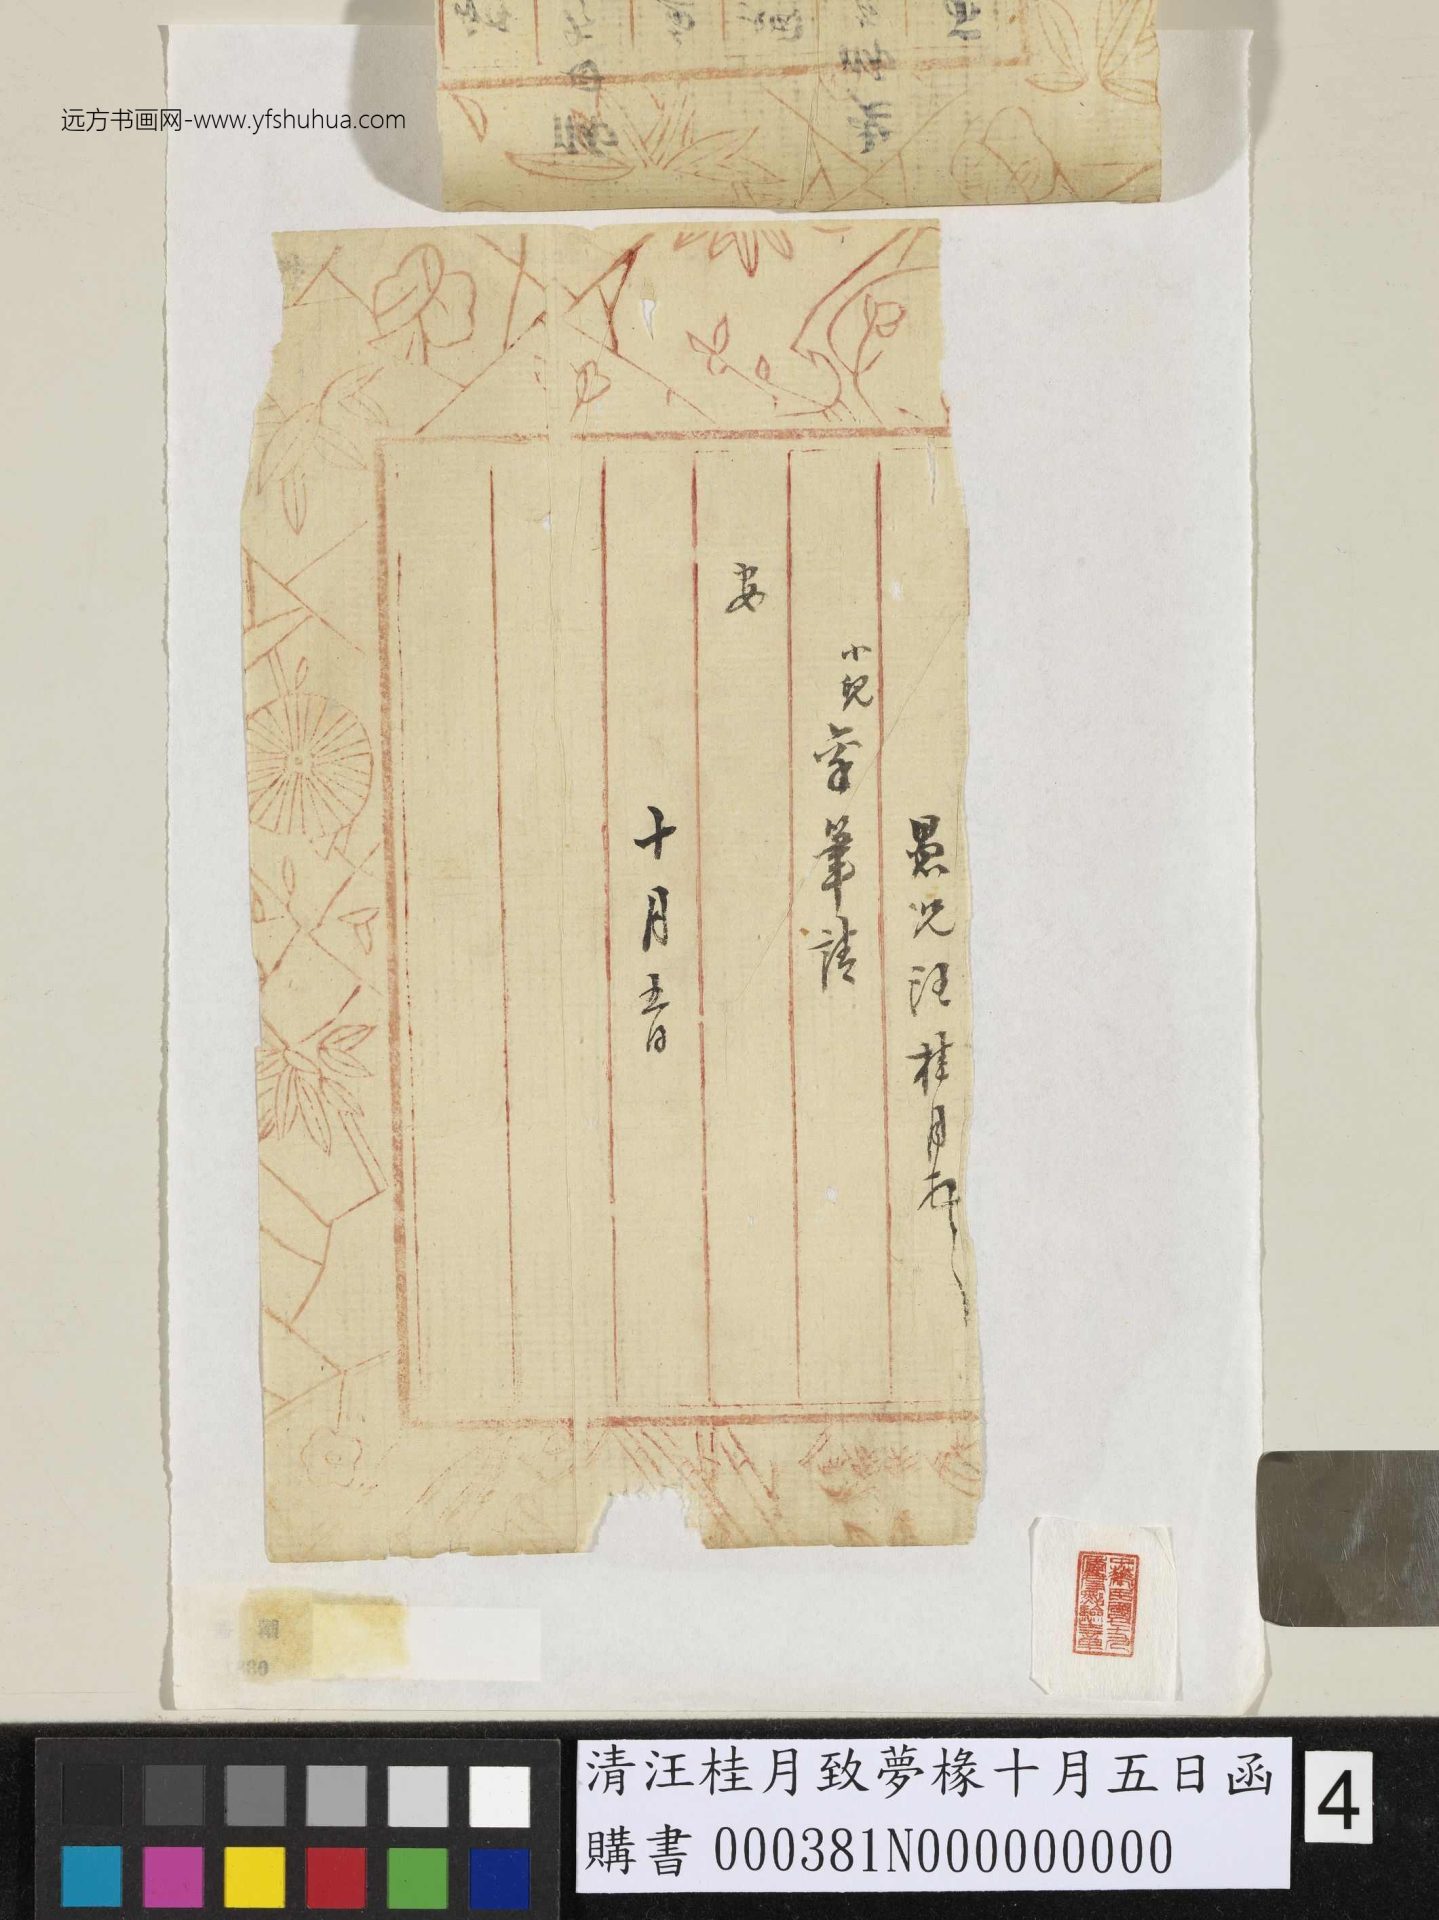 远方书画网-www.yfshuhua.com
愚兄汪桂月拜
小兒
筆請
安
十月五日
清汪桂月致夢椽十月五日函
購書 000381N000000000
4